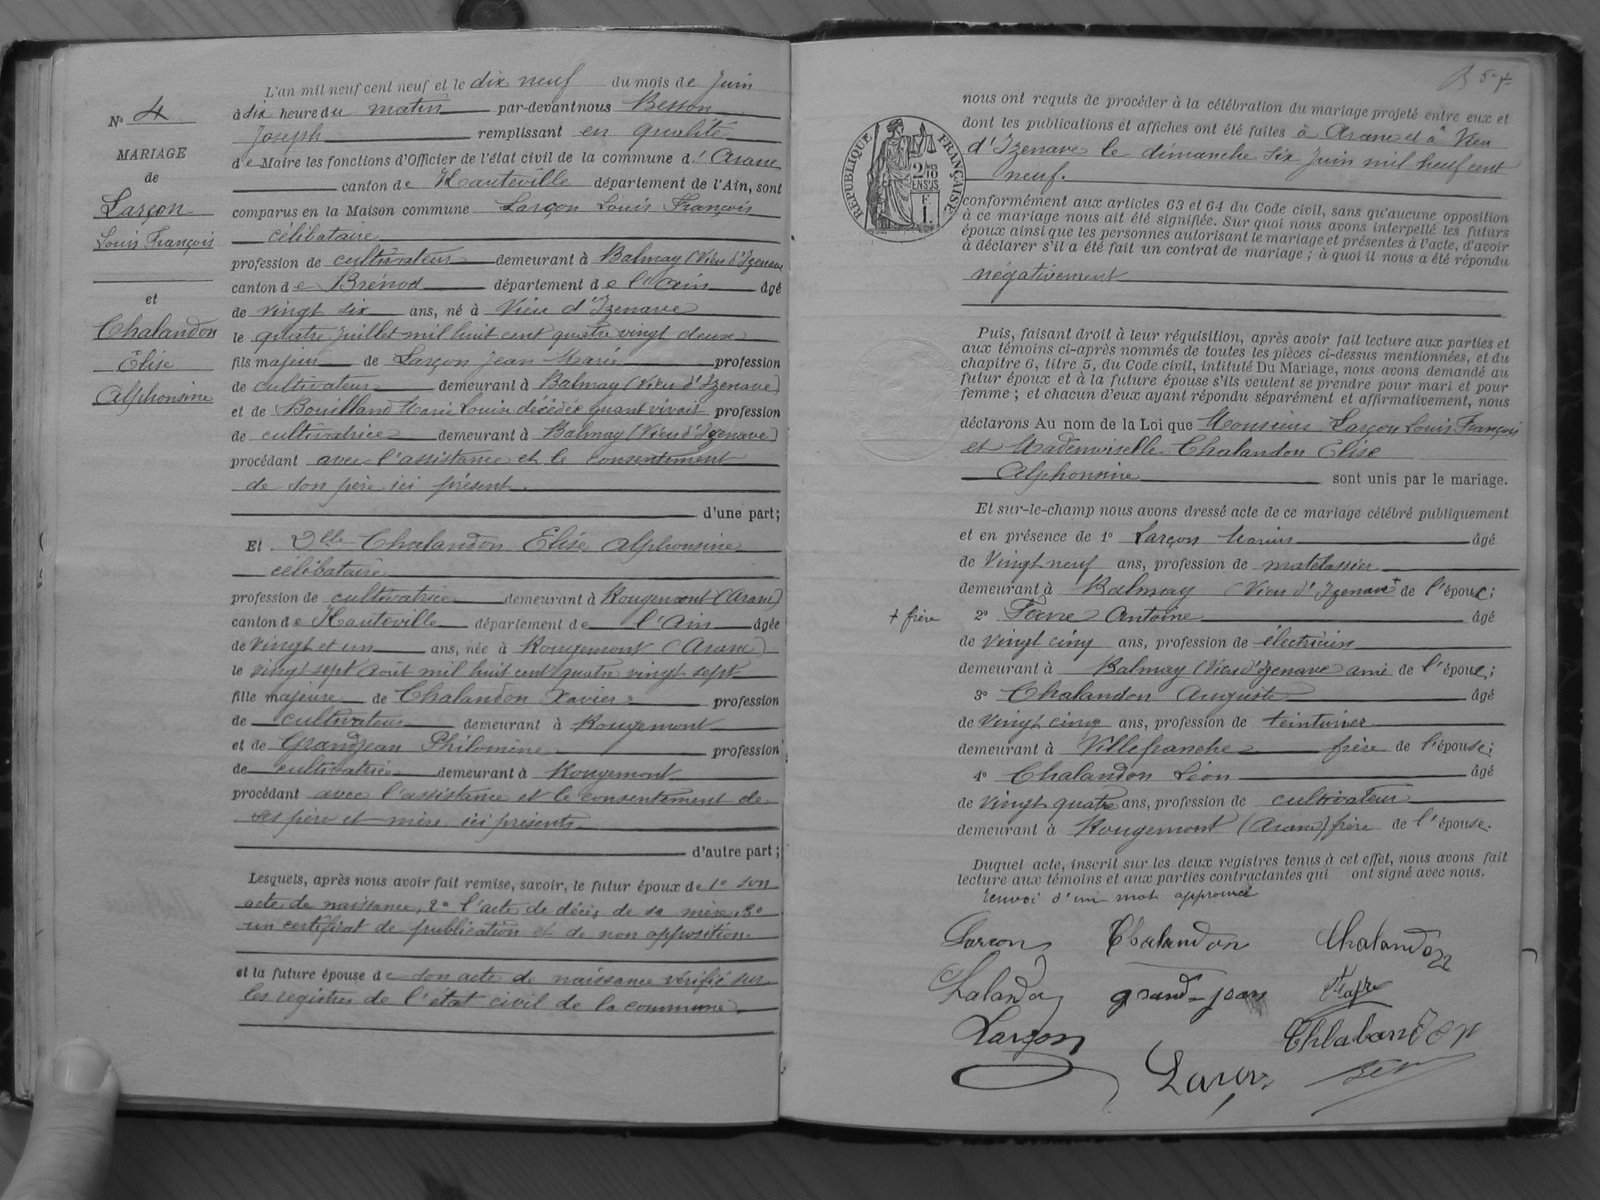 L'an mil neuf cent neuf et le dix neuf du mois de Juin
à dix heure du matin par-devant nous Besson
Joseph remplissant en qualité
de Maire les fonctions d'Officier de l'état civil de la commune d' Aranc
canton de Hauteville département de l'Ain, sont
comparus en la Maison commune Larçon Louis François
célibataire
profession de cultivateur demeurant à Balmay (Vieu d'Izenave
canton de Brénod département de l'Ain âgé
de vingt six ans, né à Vieu d'Izenave
le quatre juillet mil huit cent quatre vingt deux
fils majeur de Larçon Jean Marie profession
de cultivateur demeurant à Balmay (Vieu d'Izenave)
et de Bouilland Marie Louise décédée quant vivait profession
de cultivatrice demeurant à Balmay (Vieu d'Izenave)
procédant avec l'assistance et le consentement
de son père ici présent.
d'une part;
Et Dlle Chalandon Elise Alphonsine
célibataire
profession de cultivatrice demeurant à Rougemont (Aranc)
canton de Hauteville département de l'Ain âgée
de vingt et un ans, née à Rougemont (Aranc)
le vingt sept août mil huit cent quatre vingt sept
fille majeure de Chalandon Xavier profession
de cultivateur demeurant à Rougemont
et de Grandjean Philomène profession
de cultivatrice demeurant à Rougemont
procédant avec l'assistance et le consentement de
ses père et mère ici présents
d'autre part;
Lesquels, après nous avoir fait remise, savoir, le futur époux de 1° son
acte de naissance, 2° l'acte de décès de sa mère, 3°
un certificat de publication et de non opposition
et la future épouse de son acte de naissance vérifié sur
les registres de l'état civil de la commune
N° 4
MARIAGE
de
Larçon
Louis François
et
Chalandon
Elise
Alphonsine
nous ont requis de procéder à la célébration du mariage projeté entre eux et
dont les publications et affiches ont été faites à Aranc et à Vieu
d'Izenave le dimanche six juin mil neuf cent
neuf.
RÉPUBLIQUE FRANÇAISE
2/10
EN SUS
1 F
conformément aux articles 63 et 64 du Code civil, sans qu'aucune opposition
à ce mariage nous ait été signifiée. Sur quoi nous avons interpellé les futurs
époux ainsi que les personnes autorisant le mariage et présentes à l'acte, d'avoir
à déclarer s'il a été fait un contrat de mariage; à quoi il nous a été répondu
négativement
Puis, faisant droit à leur réquisition, après avoir fait lecture aux parties et
aux témoins ci-après nommés de toutes les pièces ci-dessus mentionnées, et du
chapitre 6, titre 5, du Code civil, intitulé Du Mariage, nous avons demandé au
futur époux et à la future épouse s'ils veulent se prendre pour mari et pour
femme; et chacun d'eux ayant répondu séparément et affirmativement, nous
déclarons Au nom de la Loi que Monsieur Larçon Louis François
et Mademoiselle Chalandon Elise
Alphonsine sont unis par le mariage.
Et sur-le-champ nous avons dressé acte de ce mariage célébré publiquement
et en présence de 1° Larçon Marius âgé
de vingt neuf ans, profession de matelassier
demeurant à Balmay (Vieu d'Izenave + de l'époux;
+ frère 2° Favre Antoine âgé
de vingt cinq ans, profession de électricien
demeurant à Balmay (Vieu d'Izenave ami de l'époux;
3° Chalandon Auguste âgé
de vingt cinq ans, profession de teinturier
demeurant à Villefranche frère de l'épouse;
4° Chalandon Léon âgé
de vingt quatre ans, profession de cultivateur
demeurant à Rougemont (Aranc) frère de l'épouse.
Duquel acte, inscrit sur les deux registres tenus à cet effet, nous avons fait
lecture aux témoins et aux parties contractantes qui ont signé avec nous.
renvoi d'un mot approuvé
Larçon Chalandon Chalandon
Chalandon grand-jean Favre
Larçon Chalandon
Larçon